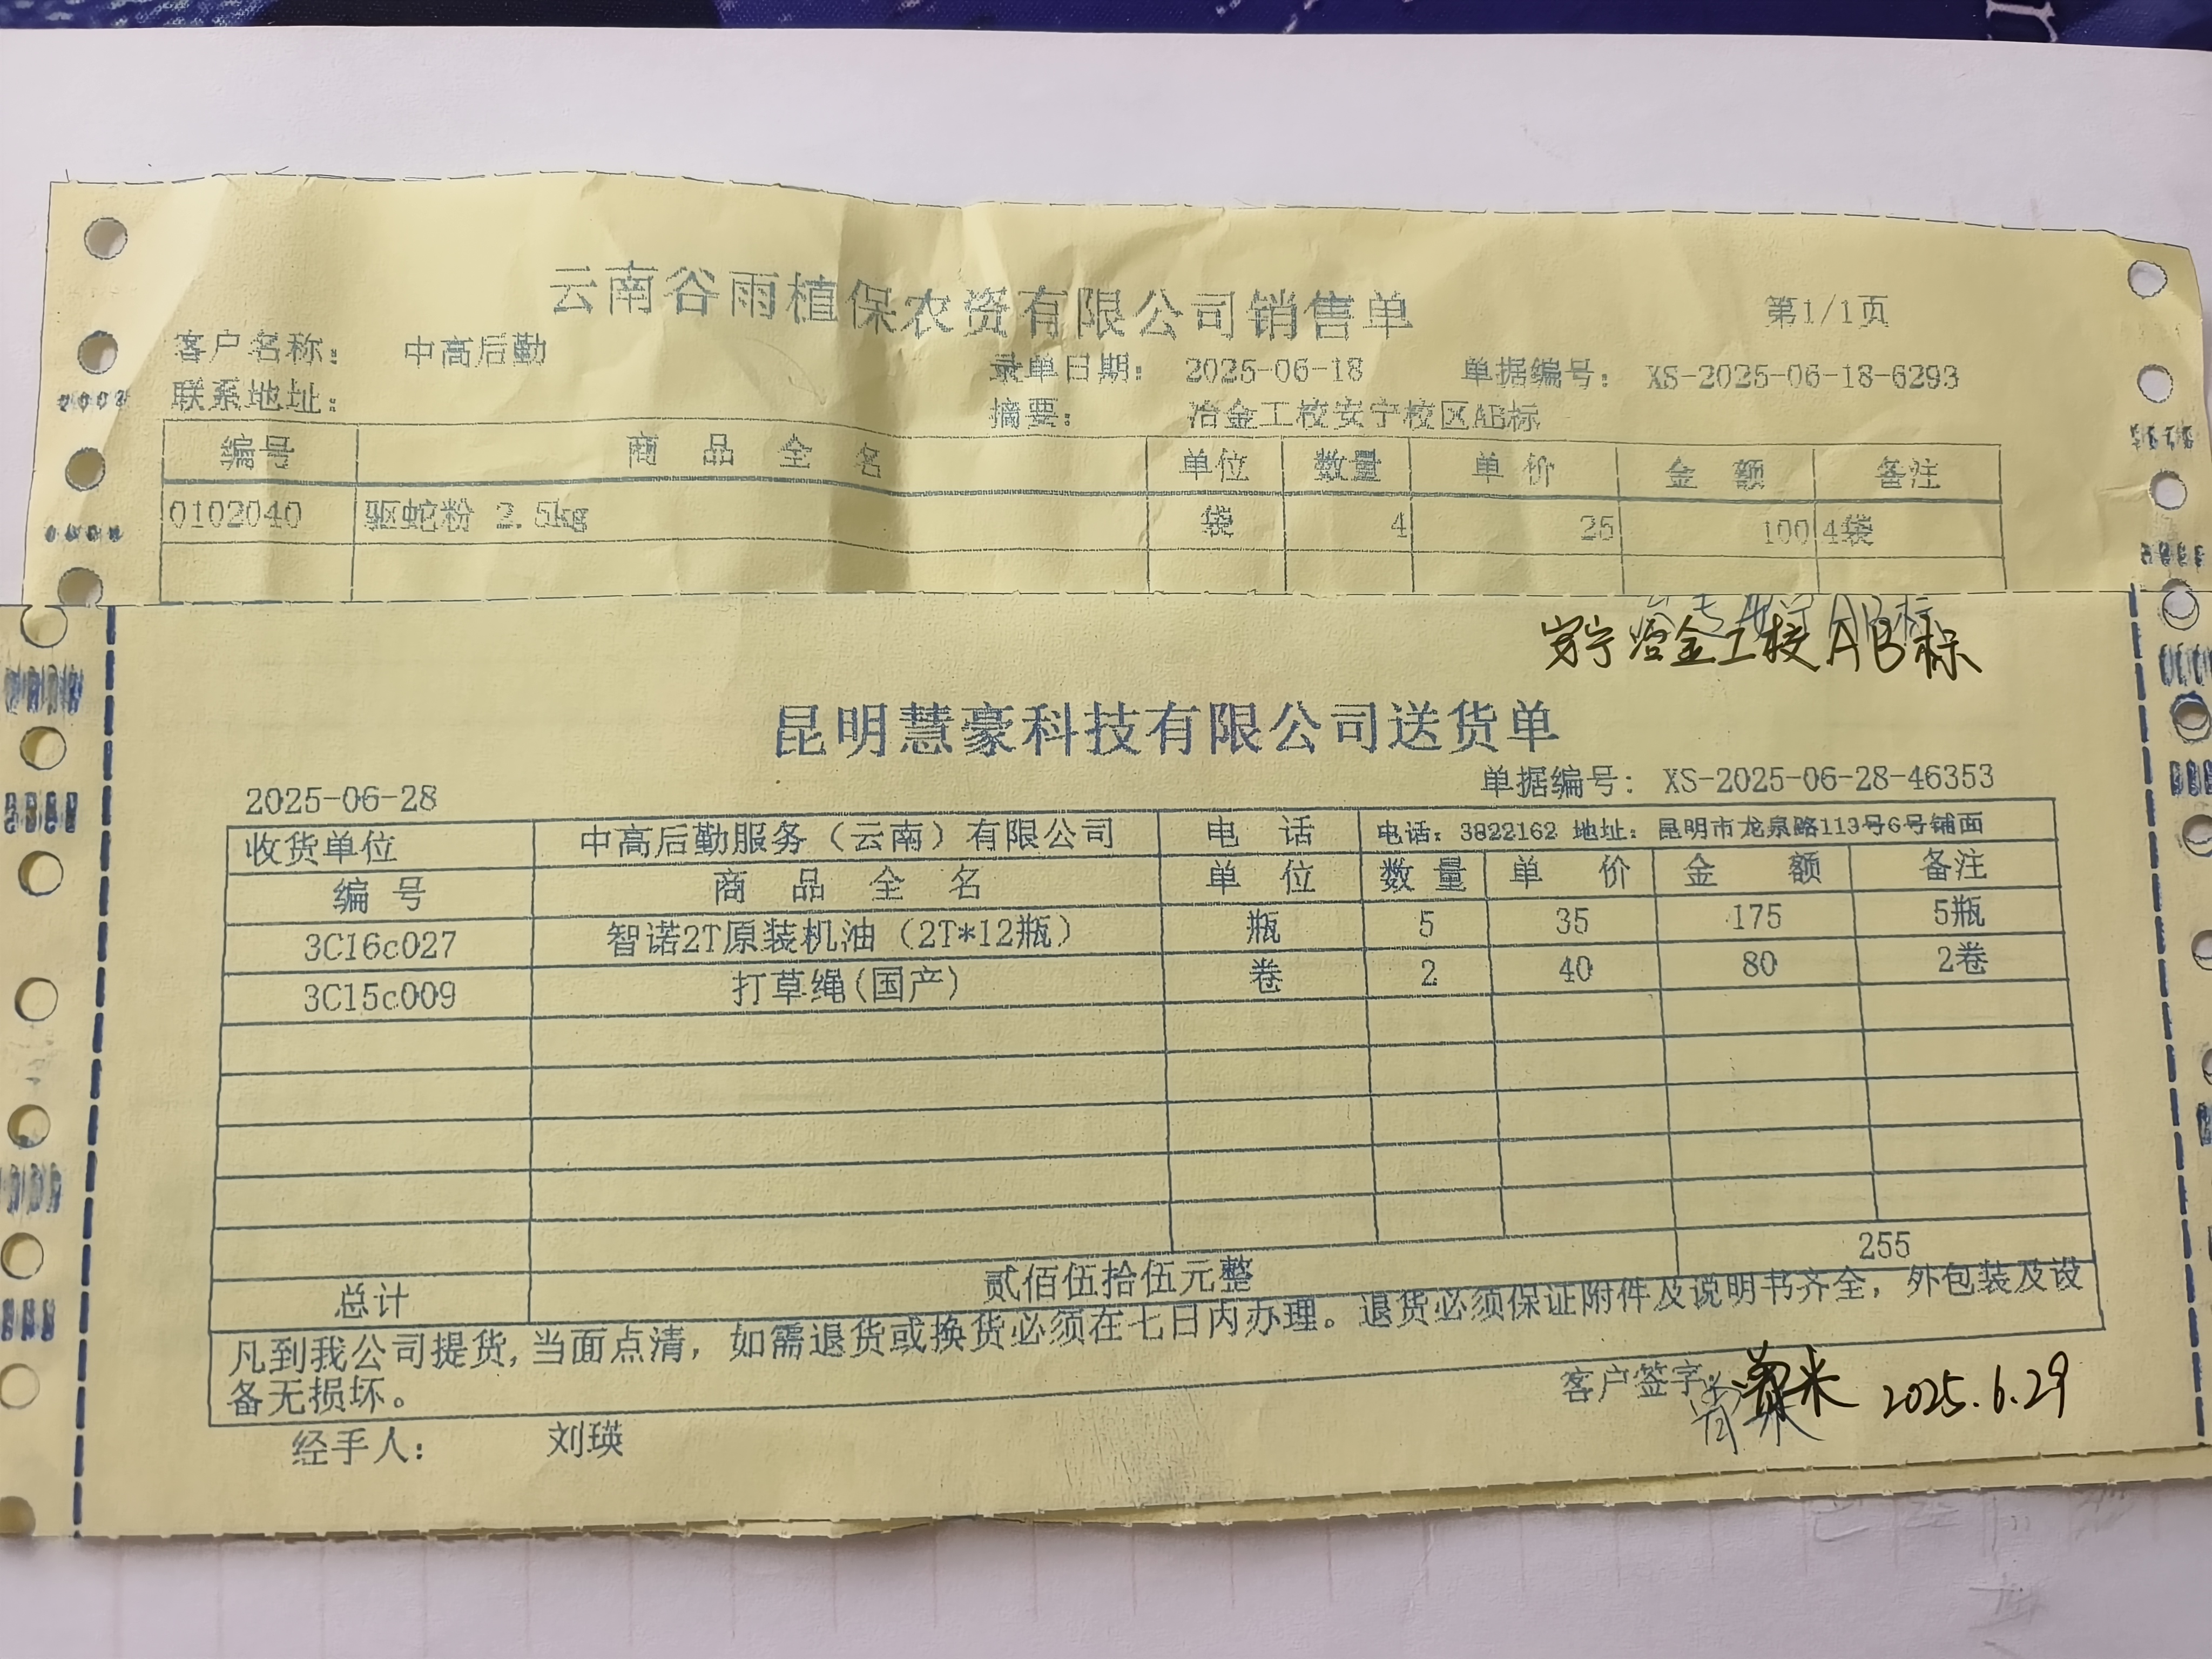 云南谷雨植保农资有限公司销售单
第1/1页
客户名称： 中高后勤 录单日期： 2025-06-18 单据编号： XS-2025-06-18-6293
联系地址： 摘要： 冶金工校安宁校区AB标
编号 商品全名 单位 数量 单价 金额 备注
0102040 驱蛇粉 2.5kg 袋 4 25 100 4袋
安宁冶金工校AB标
昆明慧豪科技有限公司送货单
2025-06-28 单据编号: XS-2025-06-28-46353
收货单位 中高后勤服务（云南）有限公司 电话 电话: 3822162 地址: 昆明市龙泉路113号6号铺面
编号 商品全名 单位 数量 单价 金额 备注
3C16c027 智诺2T原装机油（2T*12瓶） 瓶 5 35 175 5瓶
3C15c009 打草绳(国产) 卷 2 40 80 2卷
总计 贰佰伍拾伍元整 255
凡到我公司提货,当面点清，如需退货或换货必须在七日内办理。退货必须保证附件及说明书齐全，外包装及设
备无损坏。
客户签字: 2025.6.29
经手人: 刘瑛